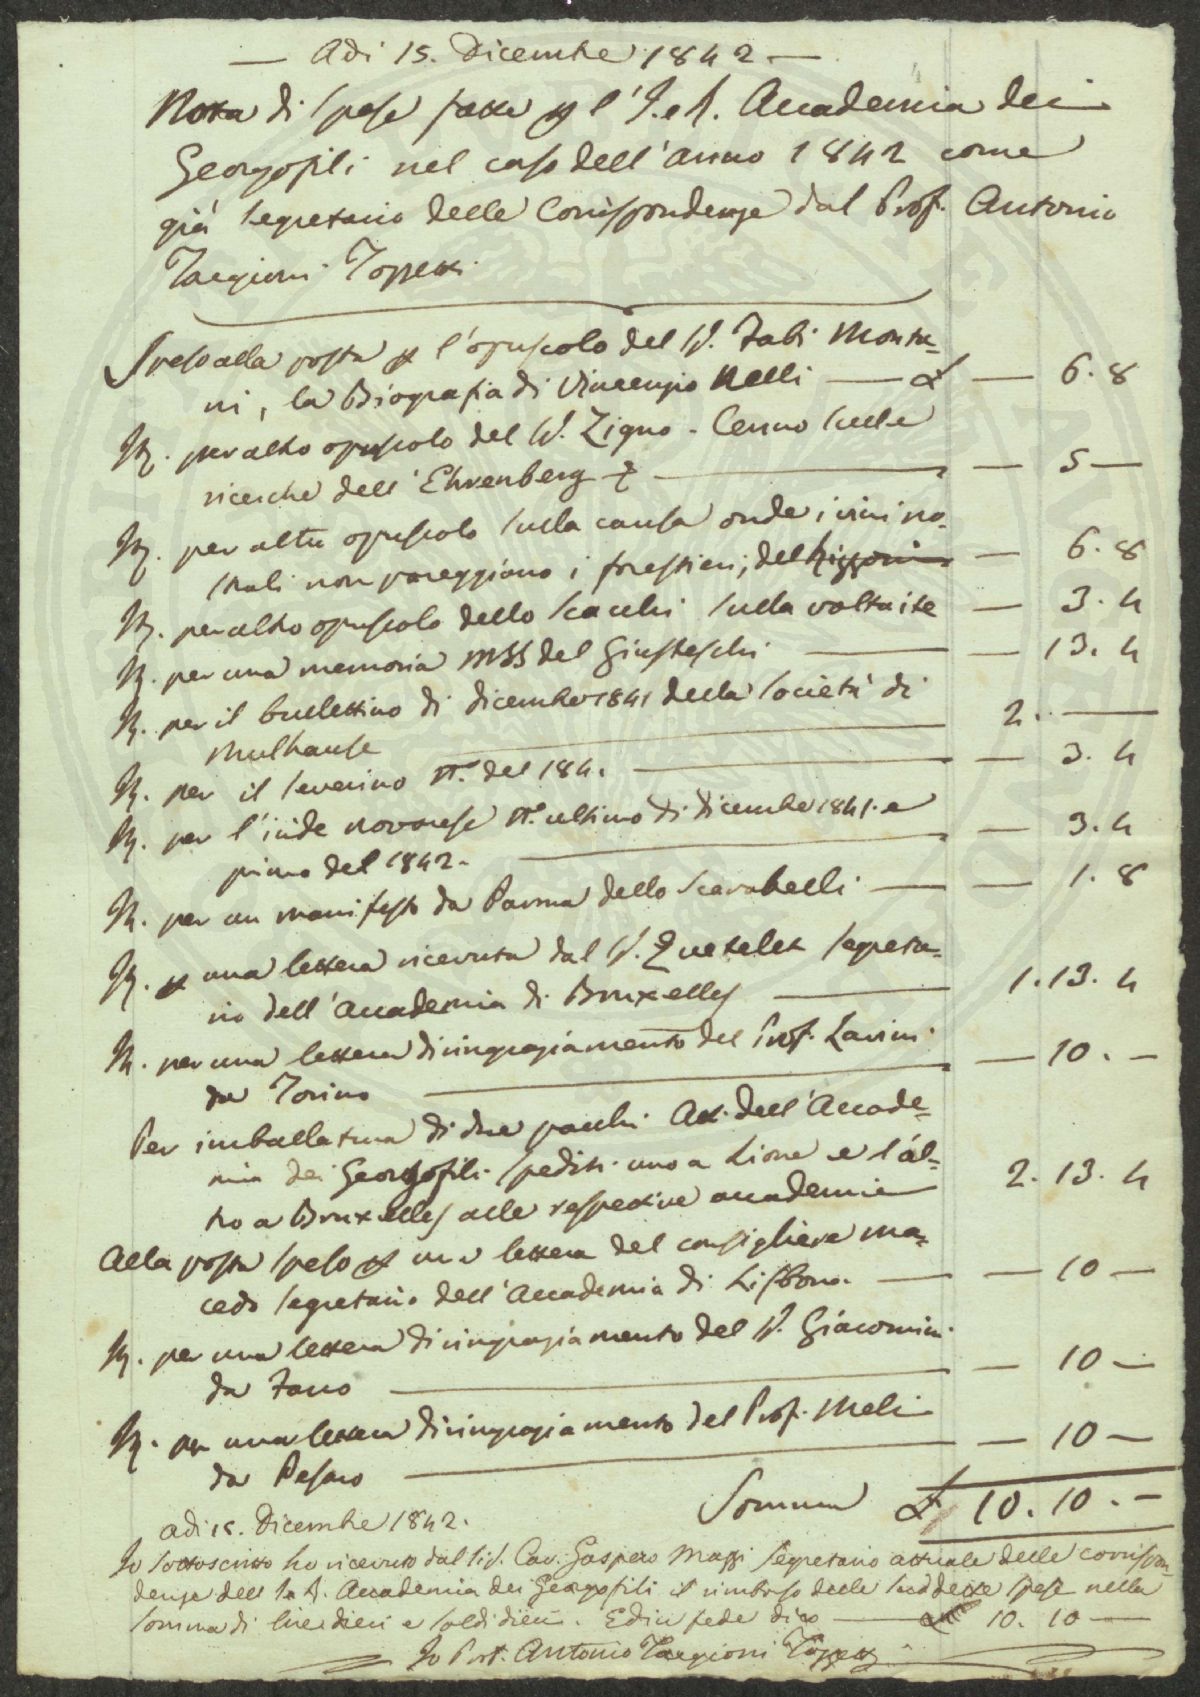 — Adi 15. Dicembre 1842 —
Nota di spese fatte p l'I. e R. Accademia dei
Georgofili nel corso dell'anno 1842 come
già Segretario delle Corrispondenze dal Prof. Antonio
Targioni Tozzetti
Speso alla posta p l'opuscolo del S. Fabi Monta-
ni, la Biografia di Vincenzio Nelli — £ — 6. 8
Id. per altro opuscolo del S. Zigno - Cenno sulle
ricerche dell'Ehrenberg — — 5 —
Id. per altro opuscolo sulla causa onde i vini no-
strali non pareggiano i forestieri; del — 6. 8
Id. per altro opuscolo dello Scacchi sulla voltaite — 3. 4
Id. per una memoria MSS del Giusteschi — — 13. 4
Id. per il bullettino di dicembre 1841 della Società di
Mulhause — 2. —
Id. per il Severino n.° del 184. — — 3. 4
Id. per l'iride novarese n.° ultimo di dicembre 1841. e
primo del 1842. — — 3. 4
Id. per un manifesto da Parma dello Scarabelli — — 1. 8
Id. p una lettera ricevuta dal S. Quetelet Segreta-
rio dell'Accademia di Bruxelles — 1. 13. 4
Id. per una lettera di ringraziamento del Prof. Lavini
da Torino — — 10. —
Per imballatura di due pacchi Att. dell'Accade-
mia dei Georgofili spediti uno a Lione e l'al-
tro a Bruxelles alle respettive accademie 2. 13. 4
Alla posta speso p una lettera del consigliere Ma-
cedo Segretario dell'Accademia di Lisbona. — — 10 —
Id. per una lettera di ringraziamento del S. Giacomini
da Fano — — 10 —
Id. per una lettera di ringraziamento del Prof. Meli
da Pesaro — — 10 —
Somma £ 10. 10. —
Adi 15. Dicembre 1842.
Io sottoscritto ho ricevuto dal Sig. Cav. Gaspero Mazzi Segretario attuale delle corrispon-
denze dell'I. e R. Accademia dei Georgofili il rimborso delle suddette spese nella
somma di lire dieci e soldi dieci. E di in fede dico — £ 10. 10 —
Io Prof. Antonio Targioni Tozzetti